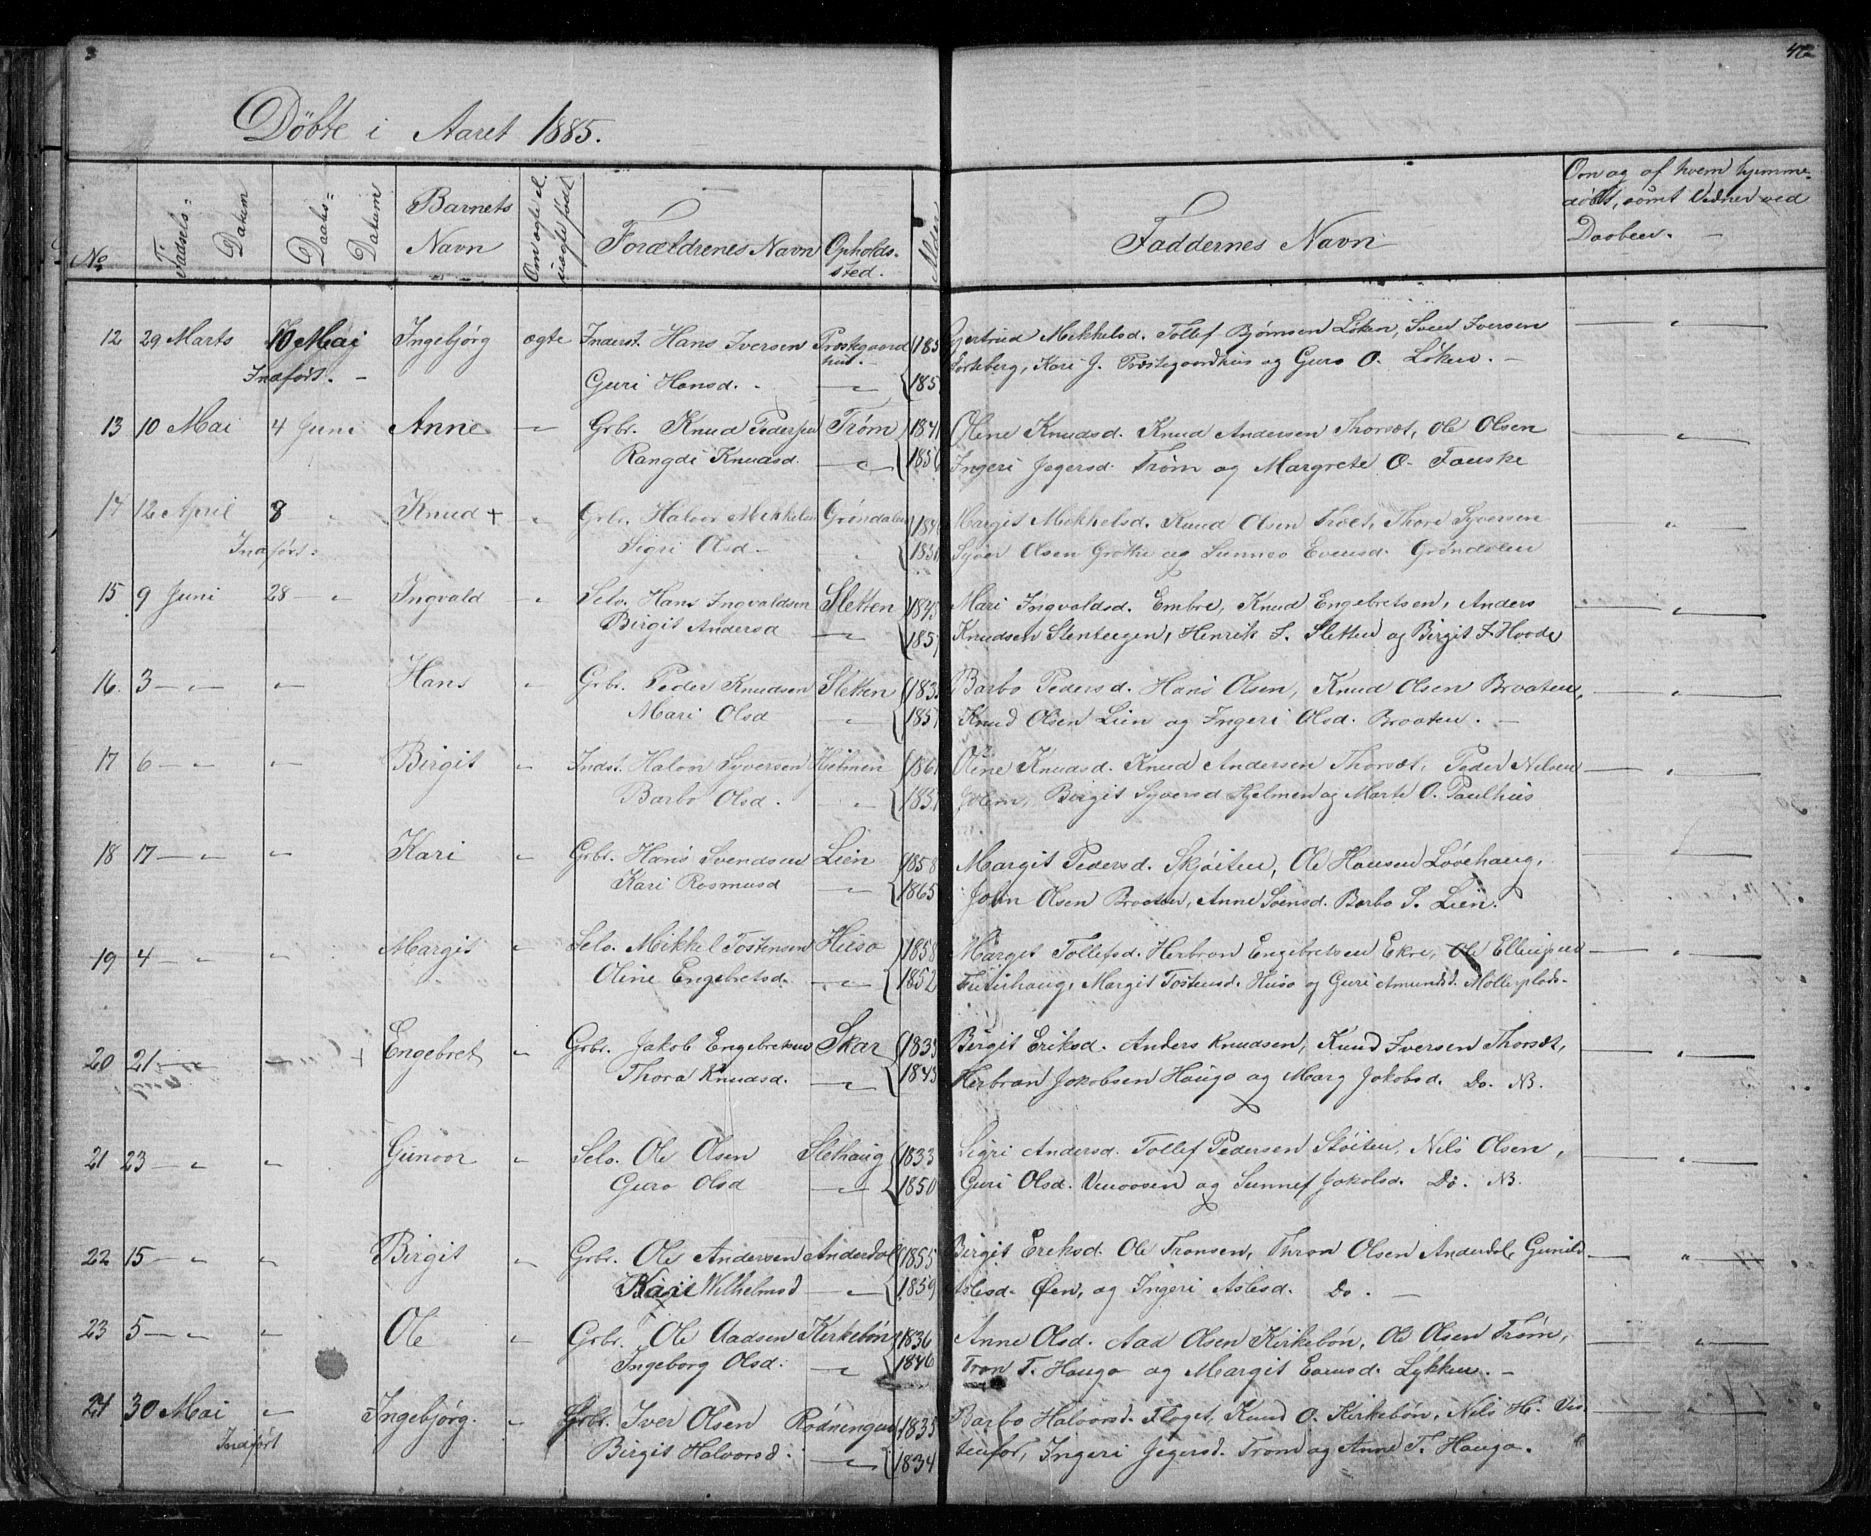 3
42
Döbte i Aaret 1885.
No
Födsels=
Datum
Daabs=
Datum
Barnets
Navn
Om ægte el.
uægte född
Forældrenes Navn
Opholds-
sted.
Alder
Faddernes Navn
Om og af hvem hjemme-
døbt, samt Vidner ved
Daaben.
12 29 Marts 10 Mai Ingebjörg ægte Inderst. Hans Iversen Præstegaard 185 Gjertrud Mikkelsd. Tollef Bjørnsen Løken, Sven Iversen
Indført. hus. Sorteberg, Kari J. Præstegaardhus og Guro O. Løken.
Guri Hansd. 185
13 10 Mai 4 Juni Anne Grbr. Knud Pedersen Trøm 1841 Oline Knudsd. Knud Andersen Thorsæt, Ole Olsen
Rangdi Knudsd. 1856 Ingeri Jegersd. Trøm og Margrete O. Fauske
14 12 April 8 Knud + Grbr. Halvor Mikkelsen Grøndalen 184 Margit Mikkelsd. Knud Olsen Troet, Thore Syversen
Indført: Sigri Olsd. 185 Syver Olsen Grøthe og Sunnev Evensd. Grøndalen
15 9 Juni 28 Ingvald Selv. Hans Ingvaldsen Sletten 1845 Mari Ingvaldsd. Embre, Knud Engebretsen, Anders
Birgit Andersd 185 Knudsen Slenteigen, Henrik I. Sletten og Birgit I. Hovde
16. 3 Hans Grbr. Peder Knudsen Sletten 183 Barbo Pedersd. Hans Olsen, Knud Olsen Braaten,
Mari Olsd 185 Knud Olsen Lien og Ingeri Olsd. Braaten.
17 6 Birgit Indst. Halvor Syversen Hjelmen 186 Oline Knudsd. Knud Andersen Thorsæt, Peder Nilsen
Barbo Olsd. 185 Birgit Syversd Hjelmen og Marte O. Paulhus
18 17 Kari Grbr. Hans Svendsen Lien 1858 Margit Pedersd. Skjöiten, Ole Hansen Lövehaug,
Kari Rasmusd 1865 John Olsen Braaten, Anne Svensd. Barbo S. Lien.
19 4 Margit Selv. Mikkel Tostensen Huso 1858 Margit Tollefsd. Herbran Engebretsen Ekre, Ole Ellingsen
Oline Engebretsd. 1852 Furuhaug, Margit Tostensd. Huso og Guri Amundsd. Mölleplads.
20 21 + Engebret Grbr. Jakob Engebretsen Skar 1835 Birgit Eriksd. Anders Knudsen, Knud Iversen Thorsæt,
Thora Knudsd. 1843 Herbran Jakobsen Haugo og Marg Jakobsd. Do. NB.
21 23 Gunvor Selv. Ole Olsen Slethaug 1833 Sigri Andersd. Tollef Pedersen Sköiten, Nils Olsen,
Guro Olsd 1850 Guri Olsd. Venoosen og Sunnef Jakobsd. Do. NB.
22 15 Birgit Grbr. Ole Andersen Anderdal 1855 Birgit Eriksd. Ole Tronsen, Thron Olsen Anderdal, Gunild
Kari Wilhelmsd 1859 Aslesd. Øen, og Ingeri Aslesd. Do.
23 5 Ole Grbr. Ole Aadsen Kirkebön 1836 Anne Olsd. Aad Olsen Kirkebön, Ole Olsen Tröm,
Ingeborg Olsd: 1846 Tron T. Haugo og Margit Evensd. Lykken.
24 30 Mai Ingebjörg. Grbr. Iver Olsen Rödningen 1835 Barbo Halvorsd. Floget, Knud O. Kirkebön, Nils H. Ves-
Indført Birgit Halvorsd: 1834 tenfor, Ingeri Jegersd. Trøm og Anne T. Haugo.